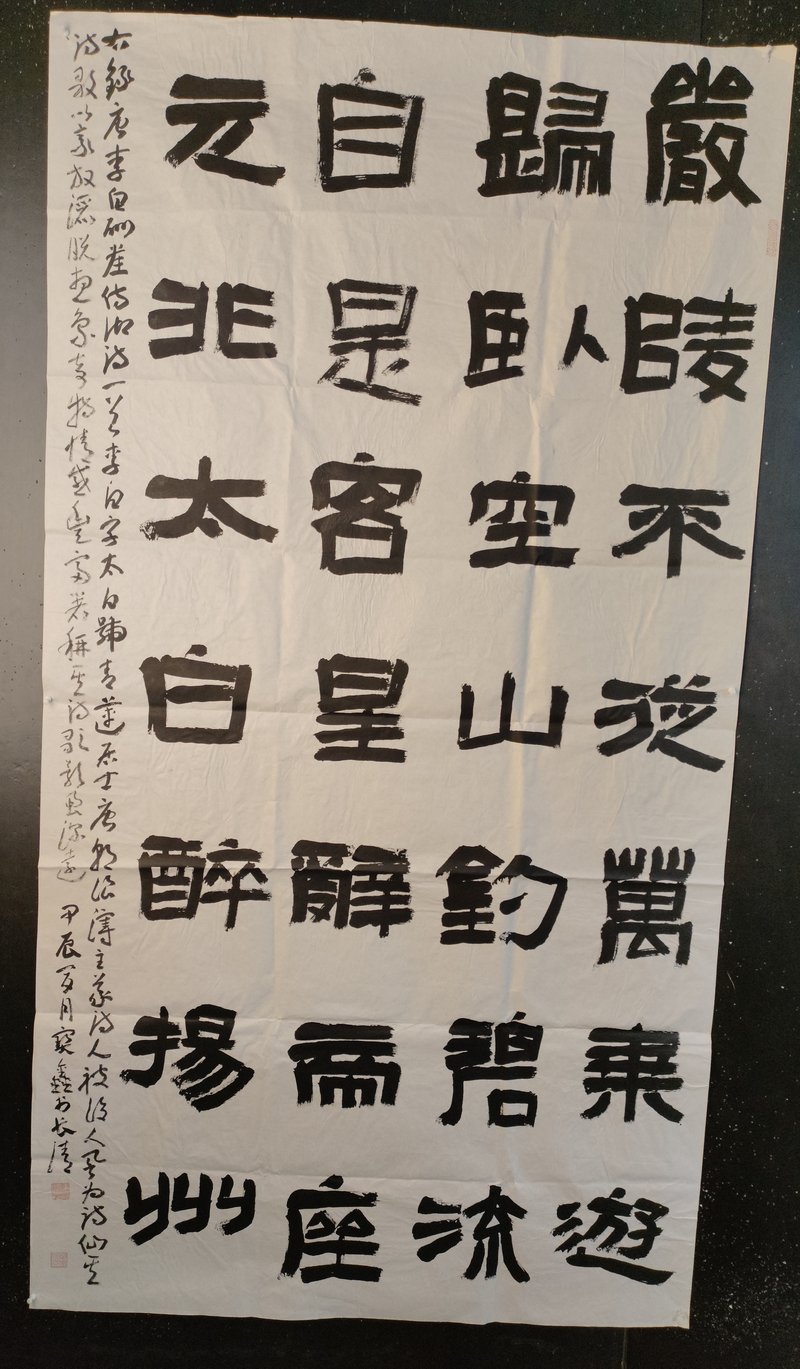 嚴陵不從萬乘遊
歸臥空山釣碧流
自是客星辭帝座
元非太白醉揚州
右錄唐李白酬崔侍御詩一首李白字太白號青蓮居士唐朝浪漫主義詩人被後人譽为詩仙其
詩歌以豪放灑脫想象奇特情感豐富著稱其詩歌影響深遠 甲辰夏月寶鑫书长清